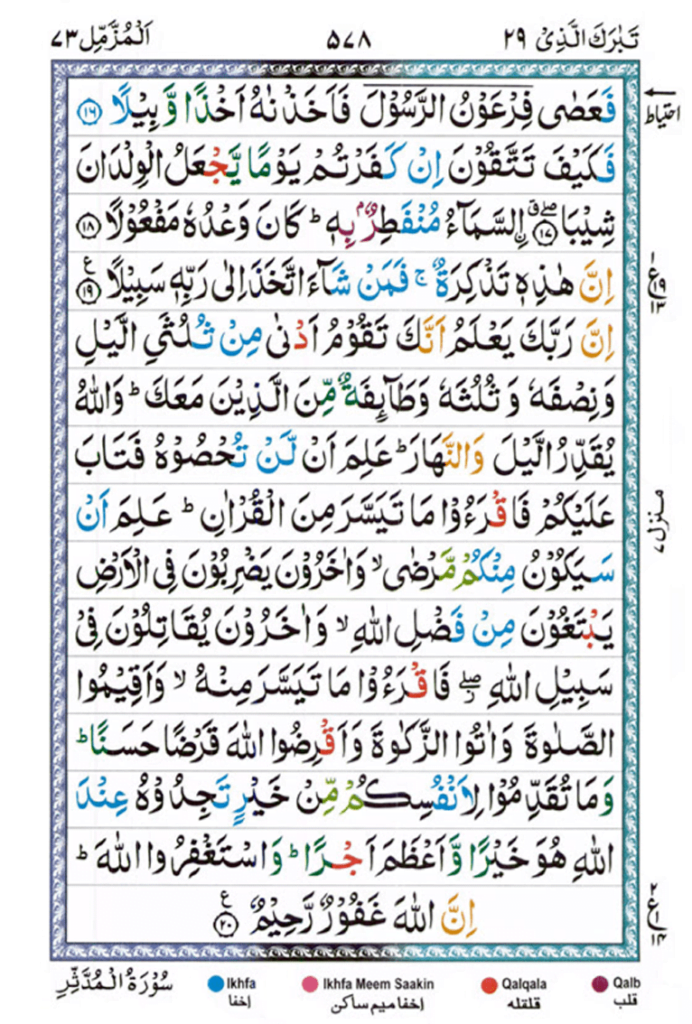 تَبٰرَكَ الَّذِیْ ۲۹
۵۷۸
اَلْمُزَّمِّل ۷۳
فَعَصٰی فِرْعَوْنُ الرَّسُوْلَ فَاَخَذْنٰهُ اَخْذًا وَّبِیْلًا ۝۱۶
احتیاط
فَكَیْفَ تَتَّقُوْنَ اِنْ كَفَرْتُمْ یَوْمًا یَّجْعَلُ الْوِلْدَانَ
شِیْبَا ۝۱۷ ۖق اِۨلسَّمَآءُ مُنْفَطِرٌۢ بِهٖ ؕ كَانَ وَعْدُهٗ مَفْعُوْلًا ۝۱۸
اِنَّ هٰذِهٖ تَذْكِرَةٌ ۚ فَمَنْ شَآءَ اتَّخَذَ اِلٰی رَبِّهٖ سَبِیْلًا ۝۱۹ ع
۱ ع ۱۹ ۱۳
اِنَّ رَبَّكَ یَعْلَمُ اَنَّكَ تَقُوْمُ اَدْنٰی مِنْ ثُلُثَیِ الَّیْلِ
وَنِصْفَهٗ وَ ثُلُثَهٗ وَطَآىِٕفَةٌ مِّنَ الَّذِیْنَ مَعَكَ ؕ وَاللّٰهُ
یُقَدِّرُ الَّیْلَ وَالنَّهَارَ ؕ عَلِمَ اَنْ لَّنْ تُحْصُوْهُ فَتَابَ
عَلَیْكُمْ فَاقْرَءُوْا مَا تَیَسَّرَ مِنَ الْقُرْاٰنِ ؕ عَلِمَ اَنْ
منزل ۷
سَیَكُوْنُ مِنْكُمْ مَّرْضٰی ۙ وَاٰخَرُوْنَ یَضْرِبُوْنَ فِی الْاَرْضِ
یَبْتَغُوْنَ مِنْ فَضْلِ اللّٰهِ ۙ وَاٰخَرُوْنَ یُقَاتِلُوْنَ فِیْ
سَبِیْلِ اللّٰهِ ۖز فَاقْرَءُوْا مَا تَیَسَّرَ مِنْهُ ۙ وَاَقِیْمُوا
الصَّلٰوةَ وَاٰتُوا الزَّكٰوةَ وَاَقْرِضُوا اللّٰهَ قَرْضًا حَسَنًا ؕ
وَمَا تُقَدِّمُوْا لِاَنْفُسِكُمْ مِّنْ خَیْرٍ تَجِدُوْهُ عِنْدَ
اللّٰهِ هُوَ خَیْرًا وَّاَعْظَمَ اَجْرًا ؕ وَاسْتَغْفِرُوا اللّٰهَ ؕ
اِنَّ اللّٰهَ غَفُوْرٌ رَّحِیْمٌ ۝۲۰ ع
۲ ع ۱ ۱۴
سُوْرَةُ الْمُدَّثِّرِ
Ikhfa
اِخفا
Ikhfa Meem Saakin
اِخفا میم ساکن
Qalqala
قلقلہ
Qalb
قلب